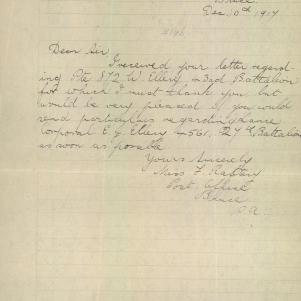 Bruce
Dec. 10th 1917
Dear Sir
I received your letter regard-
ing Pte 872 W. Ellery 43rd Battalion
for which I must thank you but
would be very pleased if you would
send particulars regarding Lance
Corporal E. G. Ellery 4561, 27th Battalion
as soon as possible
Yours Sincerely
Miss F. Raftery
Post Office
Bruce
S.A.